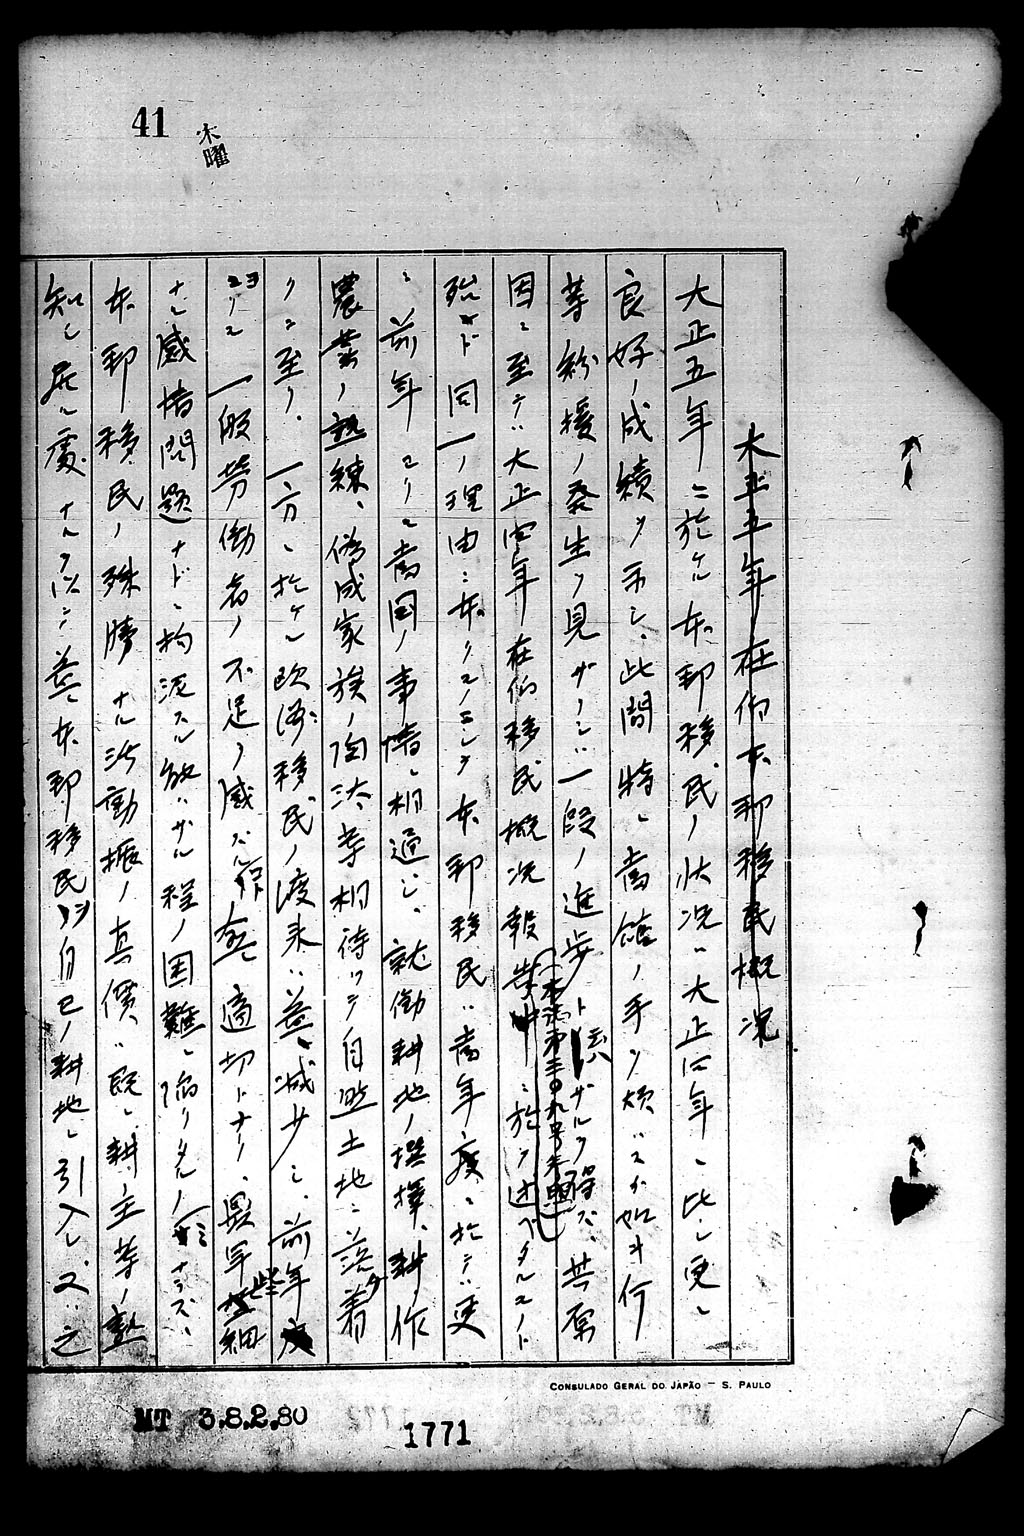 41
木曜
大正五年在伯本邦移民概況
大正五年ニ於ケル本邦移民ノ状況ハ大正四年ニ比シ更ニ
良好ノ成績ヲ示シ、此間特ニ当館ノ手ヲ煩ハスカ如キ何
等紛擾ノ発生ヲ見サリシハ一段ノ進歩ト云ハサルヲ得ス、其原
因ニ至テハ大正四年在伯移民概況報告(本公第三〇九号参照)中ニ於テ述ヘタルモノト
殆ント同一ノ理由ニ本クモノニシテ本邦移民ハ当年度ニ於テハ更
ニ前年ヨリモ当国ノ事情ニ相通シ、就働耕地ノ撰択、耕作
農業ノ熟練、偽成家族ノ淘汰等相待ツテ自然土地ニ落着
クニ至リ、一方ニ於ケル欧洲移民ノ渡来ハ益々減少シ、前年
ヨリモ一般労働者ノ不足ヲ感スル 愈々適切トナリ、異年些細
ナル感情問題ナドニ拘泥スル能ハサル程ノ困難ニ陥リタルノミナラス、
本邦移民ノ殊勝ナル活動振ノ真価ハ既ニ耕主等ノ熟
知シ居ル処ナルヲ以テ益々本邦移民ヲ自己ノ耕地ニ引入レ又ハ之
CONSULADO GERAL DO JAPÃO – S. PAULO
MT 3.8.2.80
1771